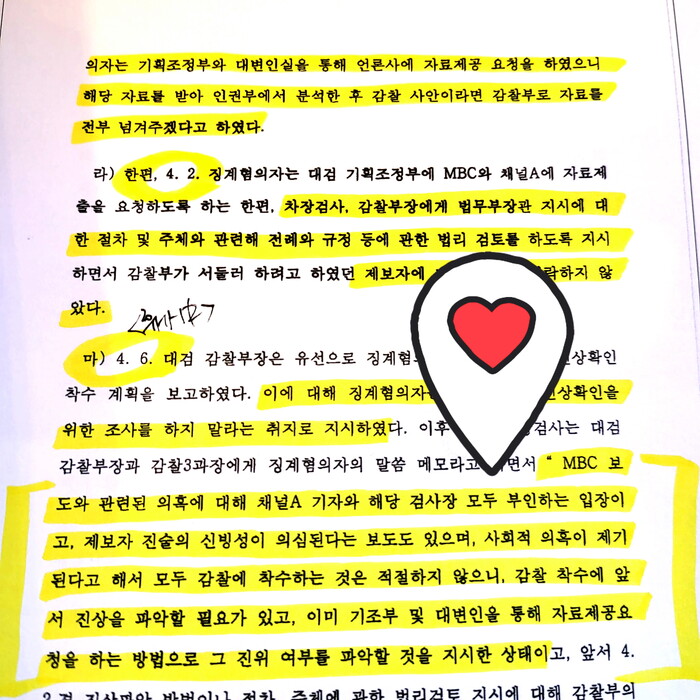 의자는 기획조정부와 대변인실을 통해 언론사에 자료제공 요청을 하였으니
해당 자료를 받아 인권부에서 분석한 후 감찰 사안이라면 감찰부로 자료를
전부 넘겨주겠다고 하였다.
라) 한편, 4. 2. 징계혐의자는 대검 기획조정부에 MBC와 채널A에 자료제
출을 요청하도록 하는 한편, 차장검사, 감찰부장에게 법무부장관 지시에 대
한 절차 및 주체와 관련해 전례와 규정 등에 관한 법리 검토를 하도록 지시
하면서 감찰부가 서둘러 하려고 하였던 제보자에 락하지 않
았다.
마) 4. 6. 대검 감찰부장은 유선으로 징계혐 상확인
착수 계획을 보고하였다. 이에 대해 징계혐의자는 상확인을
위한 조사를 하지 말라는 취지로 지시하였다. 이후 검사는 대검
감찰부장과 감찰3과장에게 징계혐의자의 말씀 메모라고 면서 “ MBC 보
도와 관련된 의혹에 대해 채널A 기자와 해당 검사장 모두 부인하는 입장이
고, 제보자 진술의 신빙성이 의심된다는 보도도 있으며, 사회적 의혹이 제기
된다고 해서 모두 감찰에 착수하는 것은 적절하지 않으니, 감찰 착수에 앞
서 진상을 파악할 필요가 있고, 이미 기조부 및 대변인을 통해 자료제공요
청을 하는 방법으로 그 진위 여부를 파악할 것을 지시한 상태이고, 앞서 4.
2.경 진상파악 방법이나 절차, 주체에 관한 법리검토 지시에 대해 감찰부의